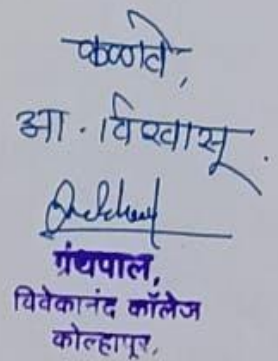 कळावे,
आ. विश्वासू.
ग्रंथपाल,
विवेकानंद कॉलेज
कोल्हापूर.